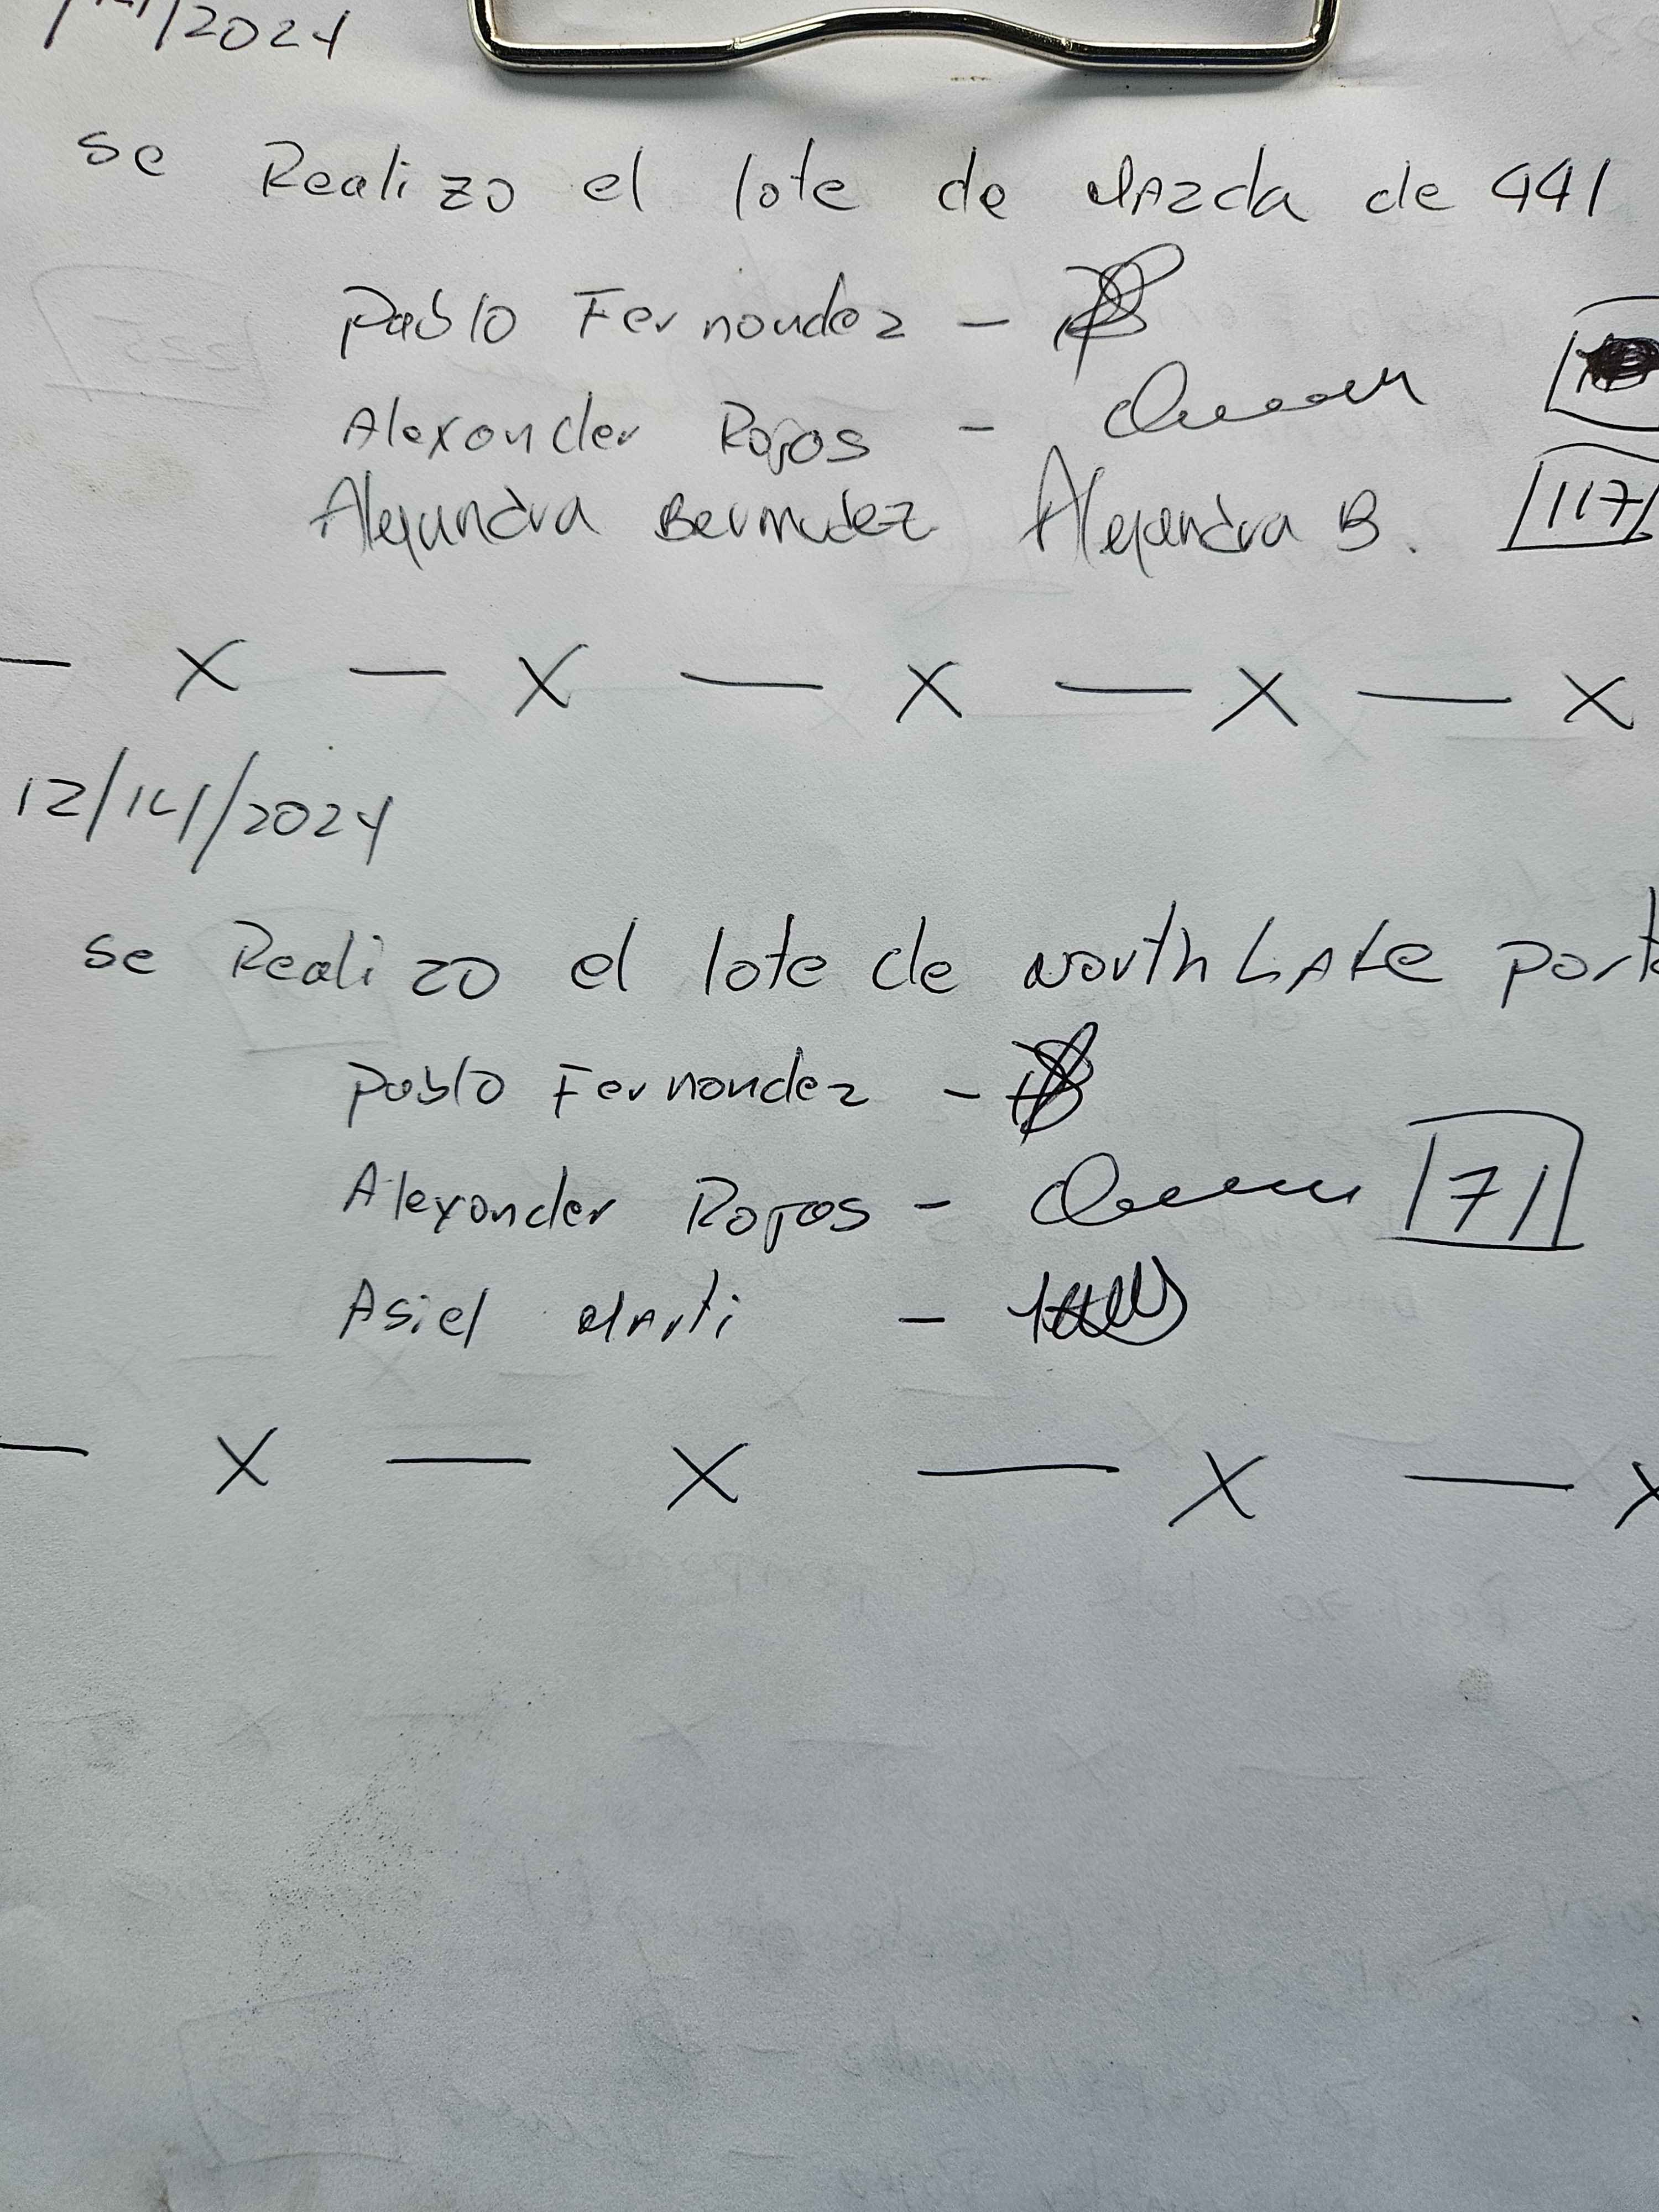 /2024
se Realizo el lote de Mazda de 441
Pablo Fernandez -
Alexander Rojas -
Alejandra Bermudez Alejandra B. 117
- X - X - X - X - X
12/14/2024
se Realizo el lote de North Lake
Pablo Fernandez -
Alexander Rojas - 71
Asiel Marti -
- X - X - X - X